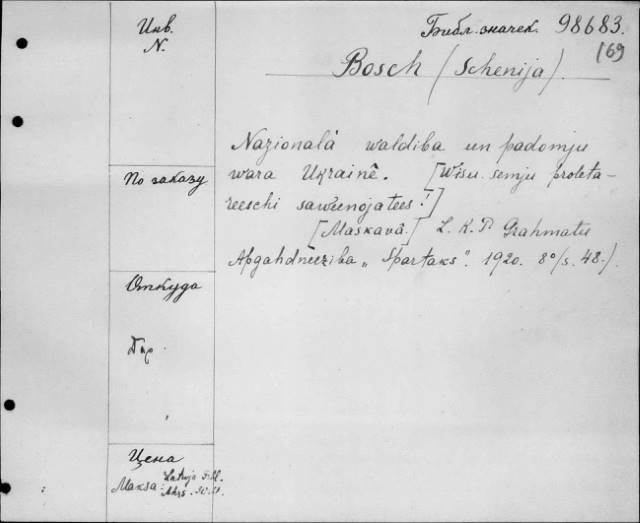 Инв. N.
Библ. значек. 98683.
169
Bosch (Schenija).
Nazionalà waldiba un padomju
wara Ukrainê. [Wisu semju proleta-
reeschi saweenojatees!]
[Maskavâ.] L. K. P. Grahmatu
Apgahdneeziba „Spartaks". 1920. 8º/s. 48.)
По заказу
Откуда
Цена
Maksa